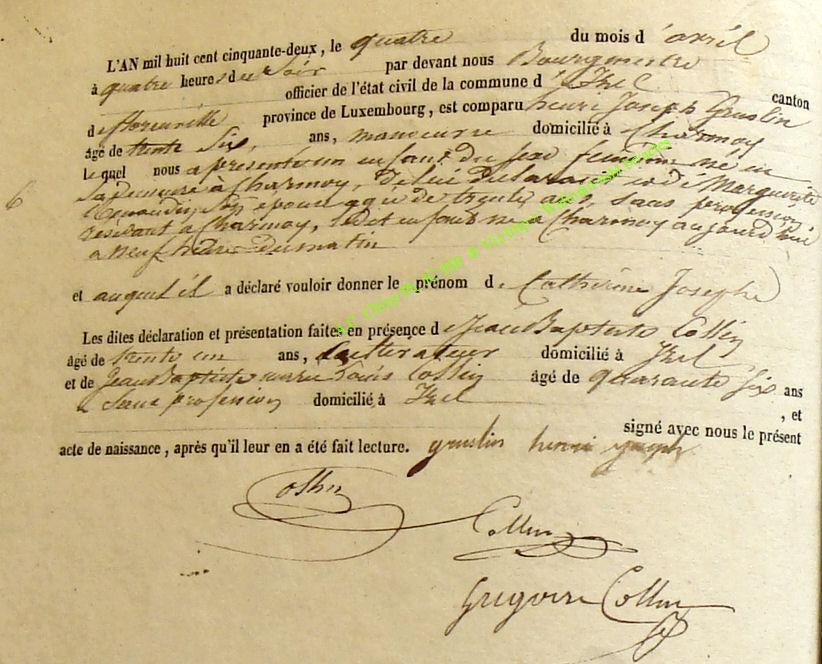 L'AN mil huit cent cinquante-deux, le quatre du mois d'avril
à quatre heures du Soir par devant nous Bourgmestre
officier de l'état civil de la commune d'Izel canton
de florenville province de Luxembourg, est comparu henri Joseph Gruslin
âgé de trente Six ans, manoeuvre domicilié à Charmoy
lequel nous a présenté un enfant du sexe feminin né en
Sa demeure à Charmoy, de lui Déclarant et de Marguerite
son épouse agée de trente ans, sans profession
résidant à Charmoy, ledit enfant né à Charmoy aujourd'hui
6
a neuf heures Du matin
et auquel il a déclaré vouloir donner le prénom de Catherine Josephe
Les dites déclaration et présentation faites en présence de Jean Baptiste Collin
âgé de trente un ans, Cultivateur domicilié à Izel
et de Jean Baptiste marie Louis Collin âgé de quarante Six ans
Sans profession domicilié à Izel , et
signé avec nous le présent
acte de naissance, après qu'il leur en a été fait lecture. gruslin henri joseph
Collin
Collin
Gregoire Collin